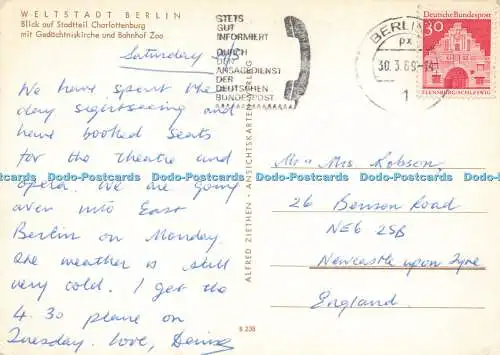 WELTSTADT BERLIN
Blick auf Stadtteil Charlottenburg
mit Gedächtniskirche und Bahnhof Zoo
Saturday
We have spent the
day sightseeing and
have booked seats
for the theatre and
opera. We are going
over into East
Berlin on Monday.
The weather is still
very cold. I get the
4.30 plane on
Tuesday. Love, Denise
STETS
GUT
INFORMIERT
DURCH
DEN
ANSAGEDIENST
DER
DEUTSCHEN
BUNDESPOST
ALFRED ZIETHEN - ANSICHTSKARTENVERLAG
B 235
BERLIN
px
30.3.69-14
1
Deutsche Bundespost
30
FLENSBURG/SCHLESWIG
Mr & Mrs Robson,
26 Benson Road
NE6 2SB
Newcastle upon Tyne
England.
Dodo-Postcards Dodo-Postcards Dodo-Postcards Dodo-Postcards Dodo-Postcards
Dodo-Postcards Dodo-Postcards Dodo-Postcards Dodo-Postcards Dodo-Postcards